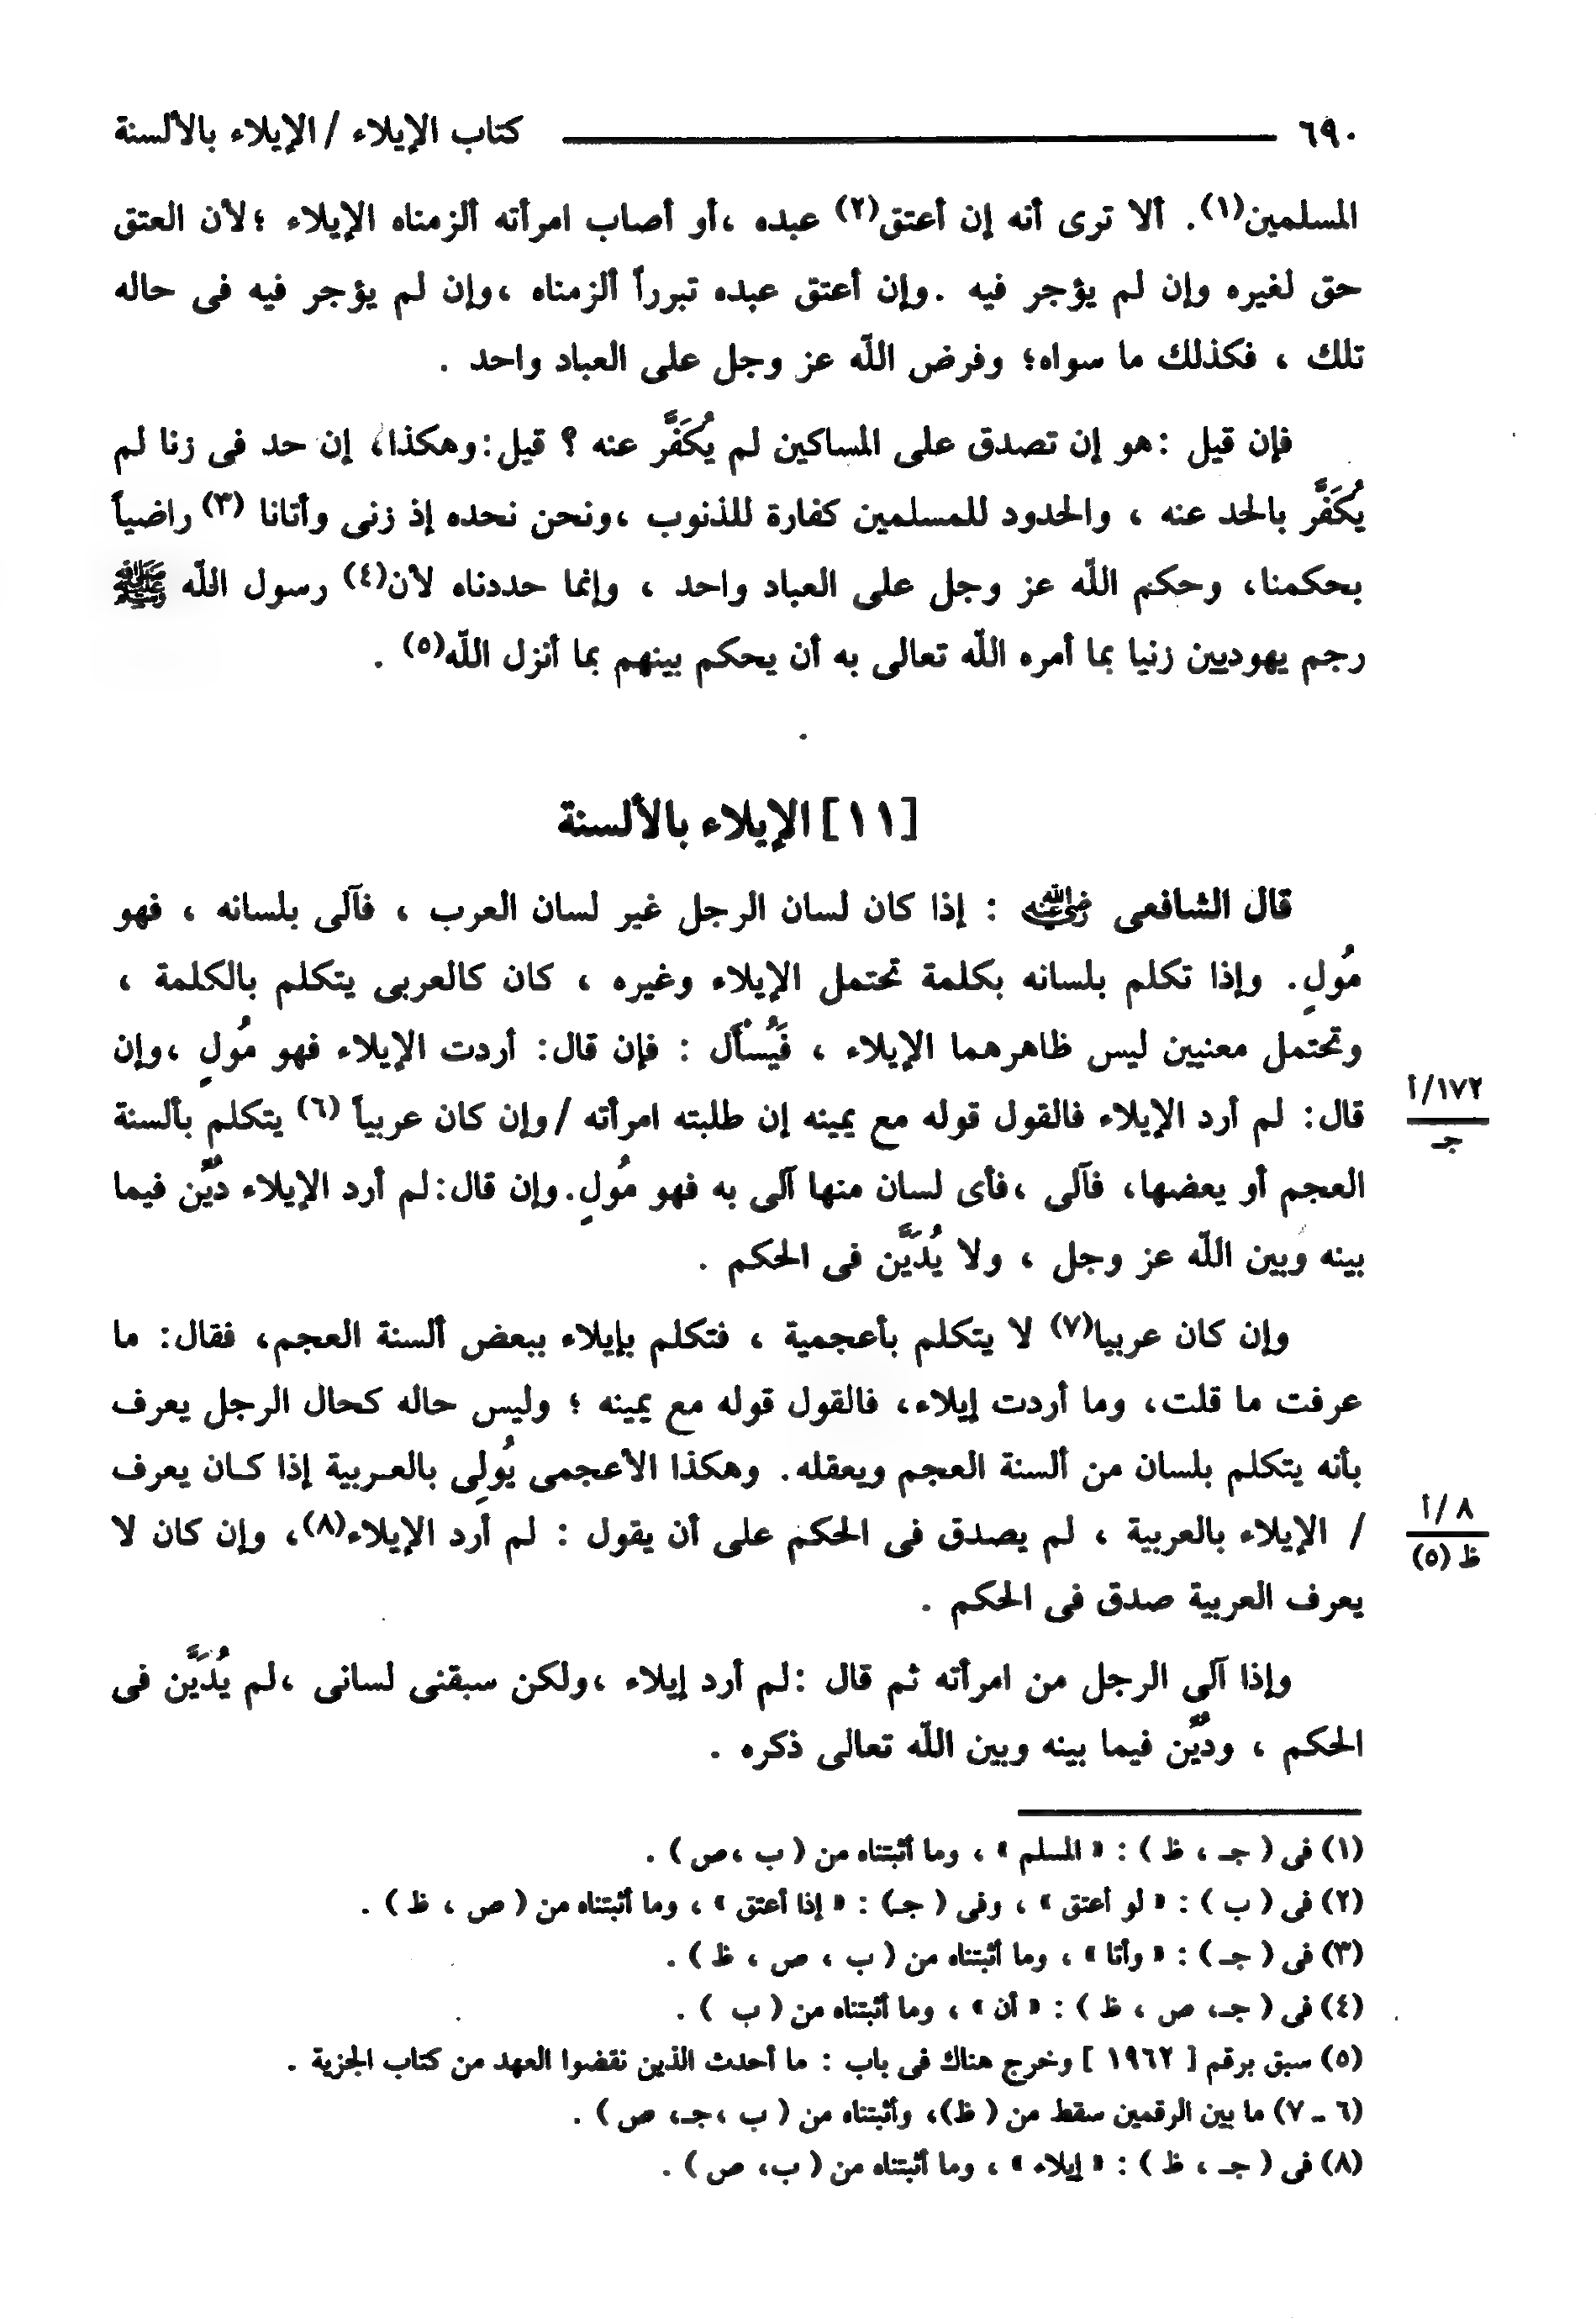 ٦٩٠ كتاب الإيلاء / الإيلاء بالألسنة
المسلمين(١). ألا ترى أنه إن أعتق(٢) عبده ،أو أصاب امرأته ألزمناه الإيلاء ؛لأن العتق
حق لغيره وإن لم يؤجر فيه .وإن أعتق عبده تبرراً ألزمناه ،وإن لم يؤجر فيه فى حاله
تلك ، فكذلك ما سواه؛ وفرض اللّه عز وجل على العباد واحد .
فإن قيل :هو إن تصدق على المساكين لم يُكَفَّر عنه ؟ قيل:وهكذا، إن حد فى زنا لم
يُكَفَّر بالحد عنه ، والحدود للمسلمين كفارة للذنوب ،ونحن نحده إذ زنى وأتانا (٣) راضياً
بحكمنا، وحكم اللّه عز وجل على العباد واحد ، وإنما حددناه لأن(٤) رسول اللّه ﷺ
رجم يهوديين زنيا بما أمره اللّه تعالى به أن يحكم بينهم بما أنزل اللّه(٥) .
[١١] الإيلاء بالألسنة
قال الشافعى رضي الله عنه : إذا كان لسان الرجل غير لسان العرب ، فآلى بلسانه ، فهو
مُولٍ. وإذا تكلم بلسانه بكلمة تحتمل الإيلاء وغيره ، كان كالعربى يتكلم بالكلمة ،
وتحتمل معنيين ليس ظاهرهما الإيلاء ، فَيُسْأَل : فإن قال: أردت الإيلاء فهو مُولٍ ،وإن
قال: لم أرد الإيلاء فالقول قوله مع يمينه إن طلبته امرأته /وإن كان عربياً (٦) يتكلم بألسنة
١٧٢/أ
جـ
العجم أو بعضها، فآلى ،فأى لسان منها آلى به فهو مُولٍ.وإن قال:لم أرد الإيلاء دُيِّن فيما
بينه وبين اللّه عز وجل ، ولا يُدَيَّن فى الحكم .
وإن كان عربيا(٧) لا يتكلم بأعجمية ، فتكلم بإيلاء ببعض ألسنة العجم، فقال: ما
عرفت ما قلت، وما أردت إيلاء، فالقول قوله مع يمينه ؛ وليس حاله كحال الرجل يعرف
بأنه يتكلم بلسان من ألسنة العجم ويعقله. وهكذا الأعجمى يُولِى بالعـربية إذا كـان يعرف
/ الإيلاء بالعربية ، لم يصدق فى الحكم على أن يقول : لم أرد الإيلاء(٨)، وإن كان لا
٨/أ
ظ (٥)
يعرف العربية صدق فى الحكم .
وإذا آلى الرجل من امرأته ثم قال :لم أرد إيلاء ،ولكن سبقنى لسانى ،لم يُدَيَّن فى
الحكم ، ودُيِّن فيما بينه وبين اللّه تعالى ذكره .
(١) فى ( جـ ، ظ ) : « المسلم » ، وما أثبتناه من ( ب ،ص ) .
(٢) فى ( ب ) : « لو أعتق » ، وفى ( جـ) : « إذا أعتق » ، وما أثبتناه من ( ص ، ظ ) .
(٣) فى ( جـ ) : « وأتا » ، وما أثبتناه من ( ب ، ص ، ظ ) .
(٤) فى ( جـ، ص ، ظ ) : « أن » ، وما أثبتناه من ( ب ) .
(٥) سبق برقم [ ١٩٦٢ ] وخرج هناك فى باب : ما أحدث الذين نقضوا العهد من كتاب الجزية .
(٦ - ٧) ما بين الرقمين سقط من ( ظ)، وأثبتناه من ( ب ،جـ، ص ) .
(٨) فى ( جـ ، ظ ) : « إيلاء » ، وما أثبتناه من ( ب، ص ) .